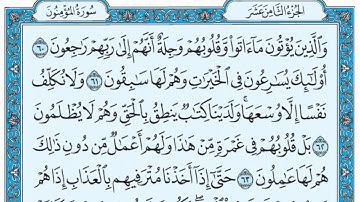 الجزء الثامن عشر
سورة المؤمنون
وَٱلَّذِينَ يُؤْتُونَ مَآ ءَاتَوا۟ وَّقُلُوبُهُمْ وَجِلَةٌ أَنَّهُمْ إِلَىٰ رَبِّهِمْ رَٰجِعُونَ ٦٠
أُو۟لَٰٓئِكَ يُسَٰرِعُونَ فِى ٱلْخَيْرَٰتِ وَهُمْ لَهَا سَٰبِقُونَ ٦١ وَلَا نُكَلِّفُ
نَفْسًا إِلَّا وُسْعَهَا ۖ وَلَدَيْنَا كِتَٰبٌ يَنطِقُ بِٱلْحَقِّ وَهُمْ لَا يُظْلَمُونَ
٦٢ بَلْ قُلُوبُهُمْ فِى غَمْرَةٍ مِّنْ هَٰذَا وَلَهُمْ أَعْمَٰلٌ مِّن دُونِ ذَٰلِكَ
هُمْ لَهَا عَٰمِلُونَ ٦٣ حَتَّىٰٓ إِذَآ أَخَذْنَا مُتْرَفِيهِم بِٱلْعَذَابِ إِذَا هُمْ